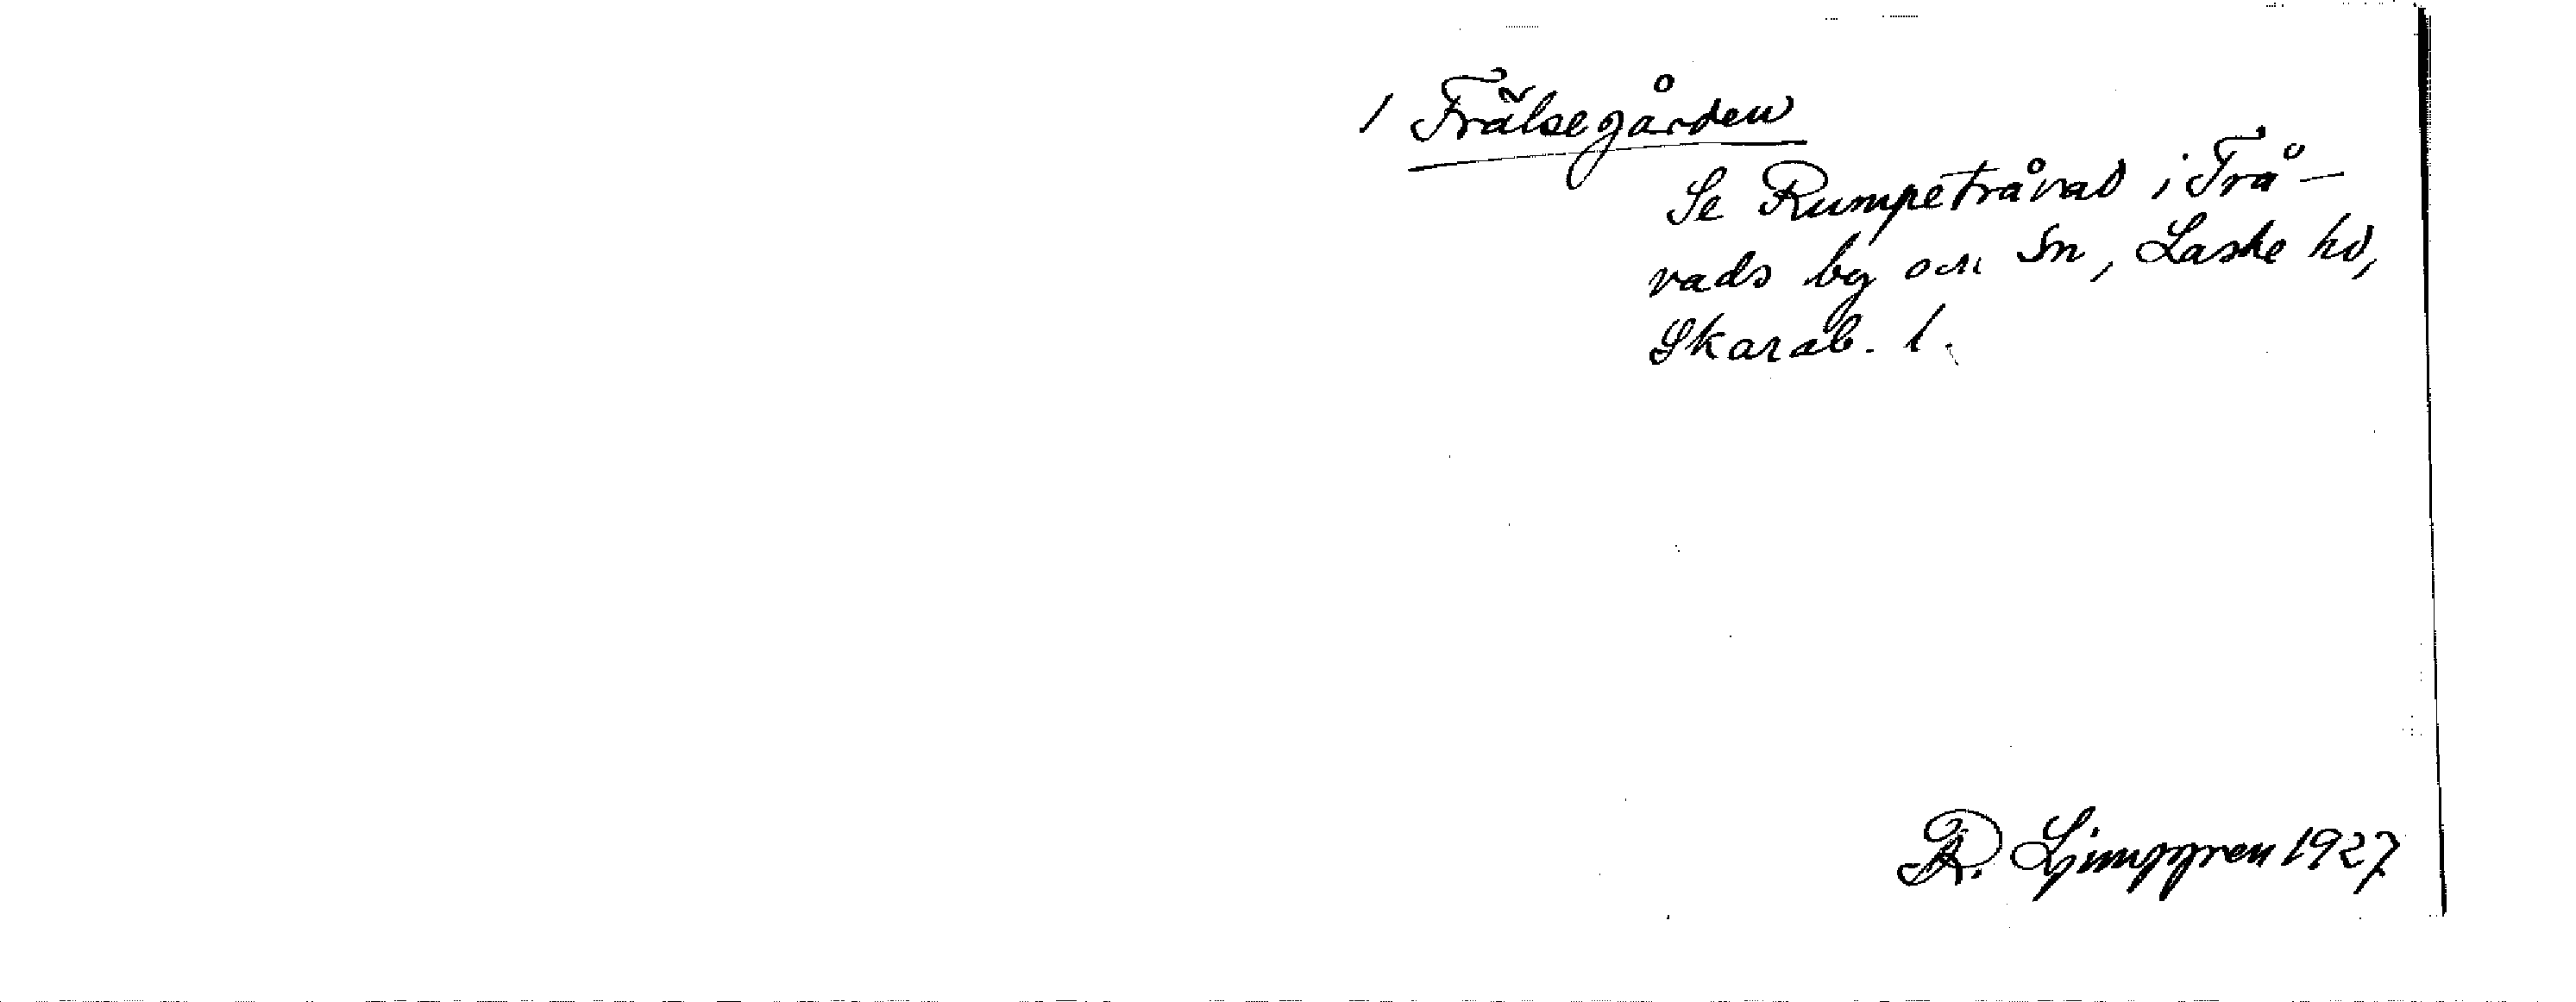 / Frälsegården
Se Rumpetråvad i Trå-
vads by och Sn, Laske hd,
Skarab. l.
R. Ljunggren 1927